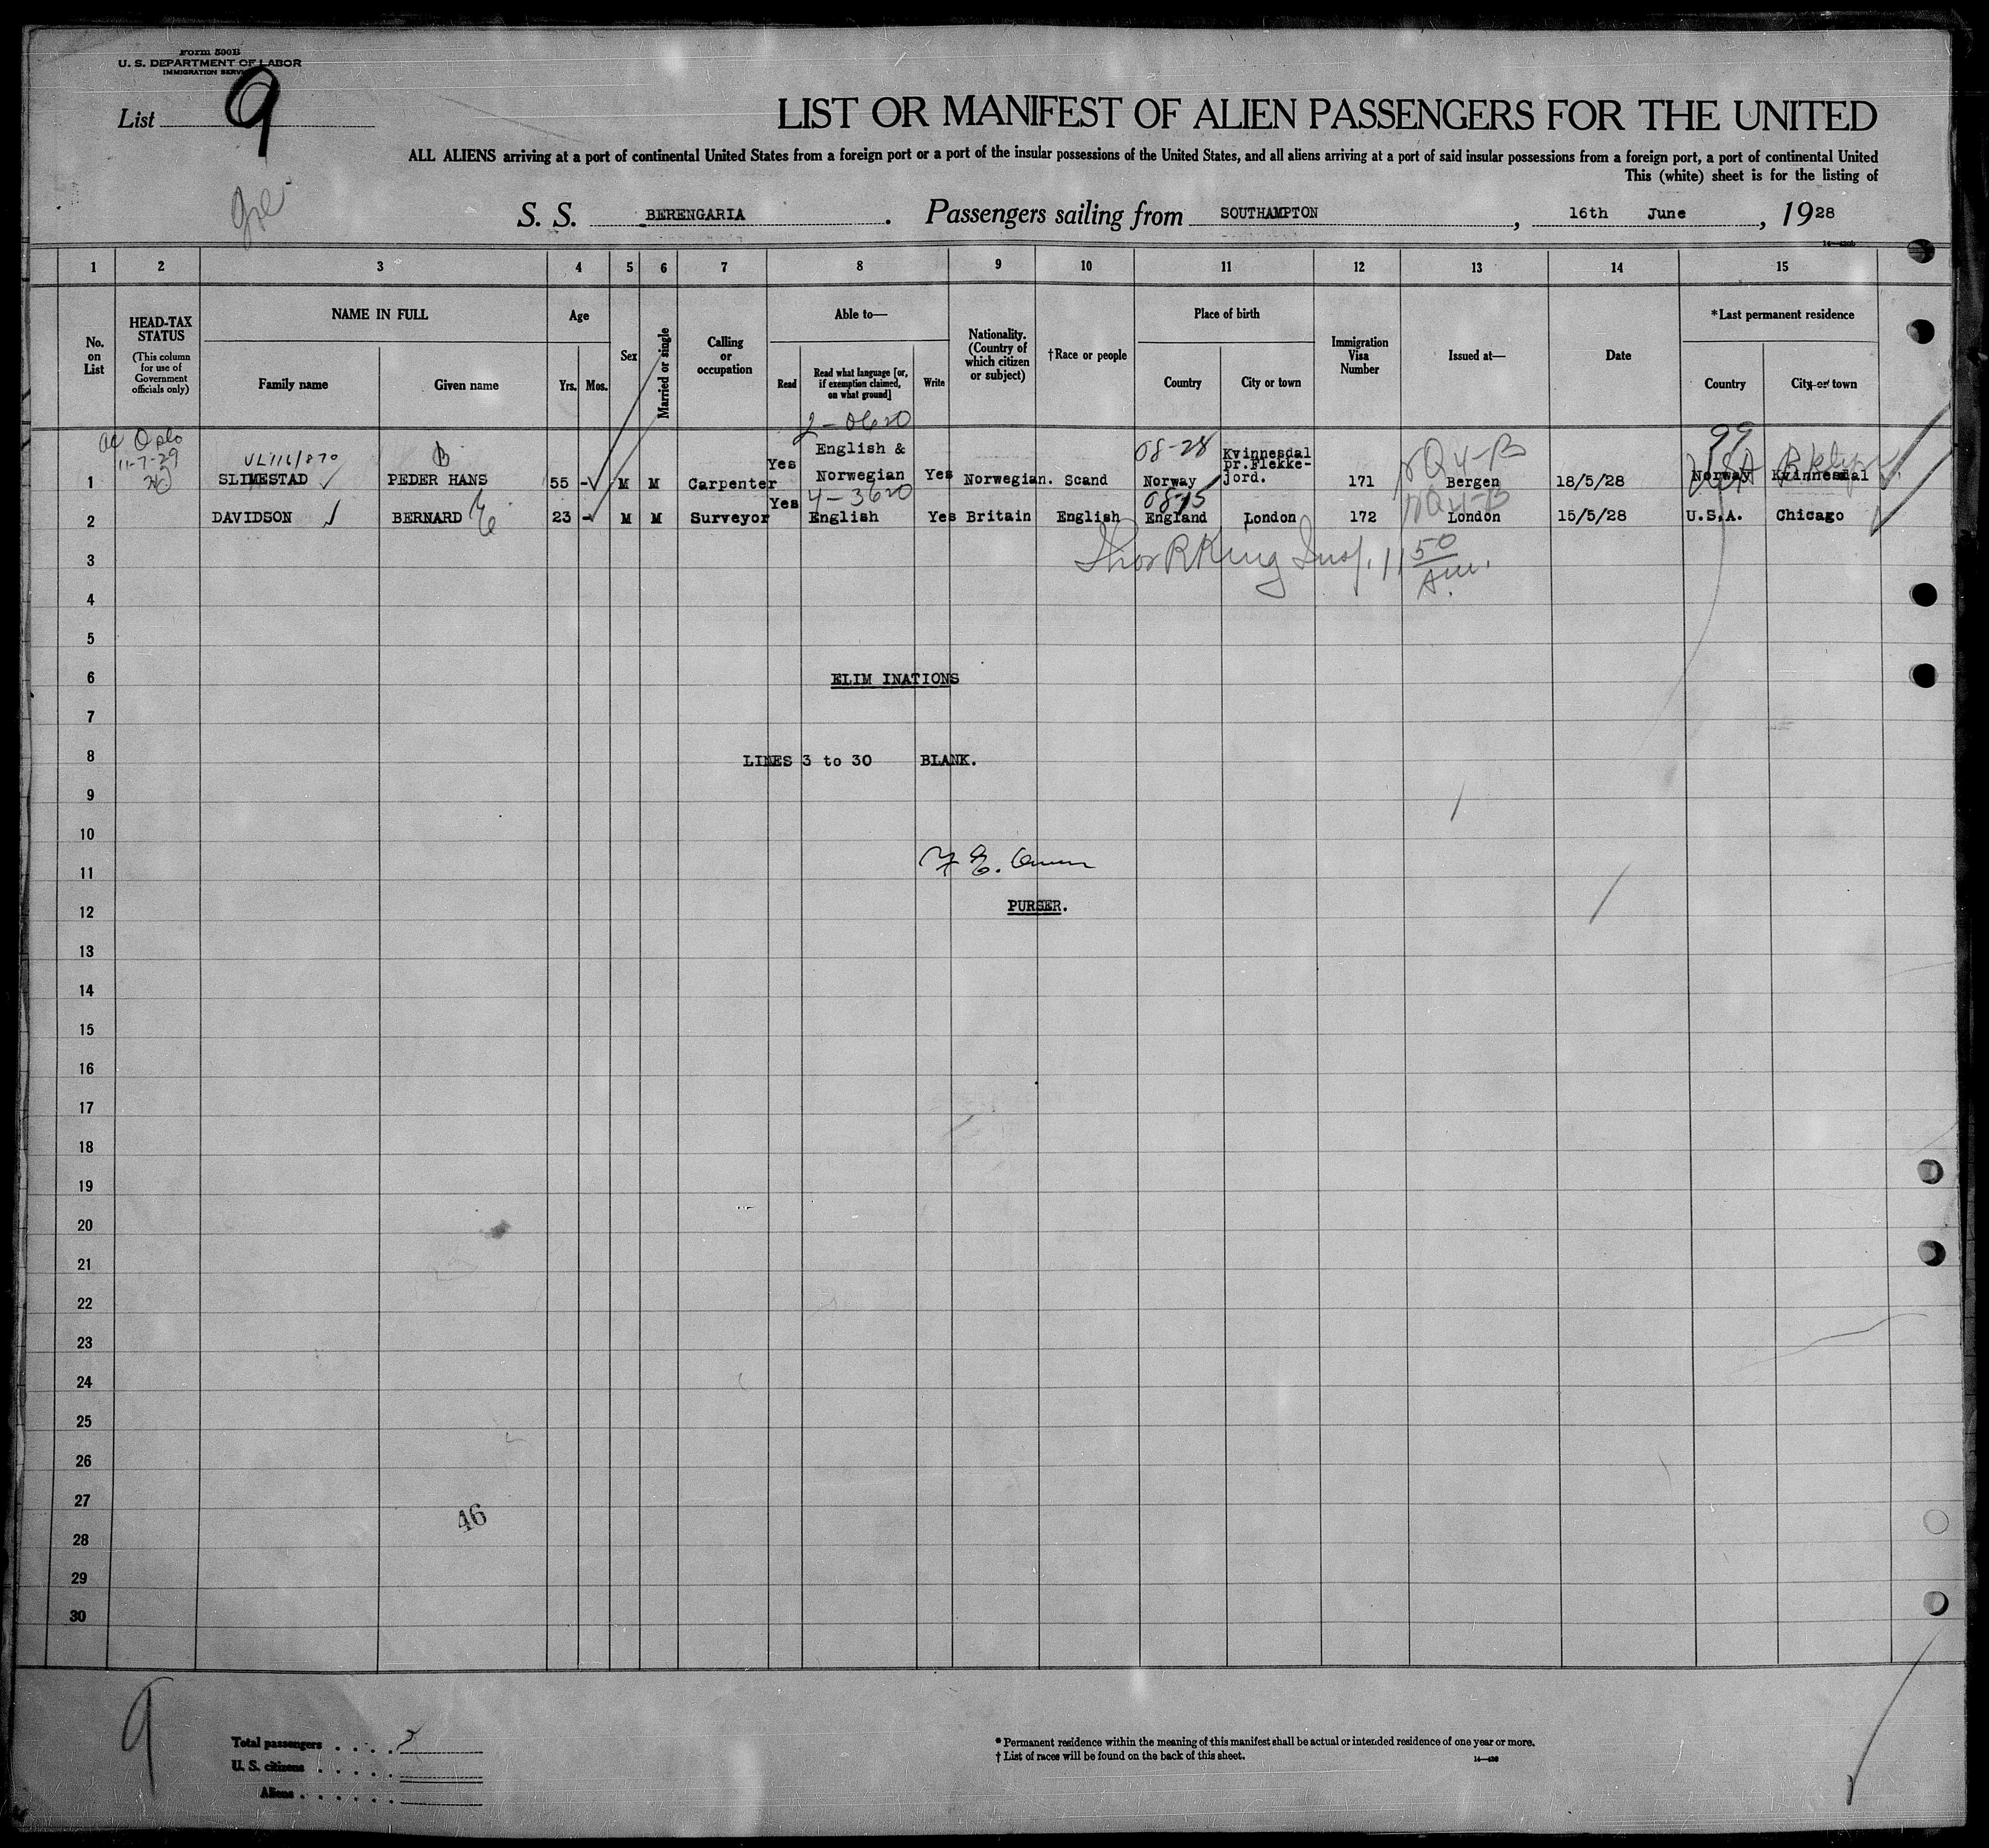 Form 500B
U. S. DEPARTMENT OF LABOR
IMMIGRATION SERVICE
List 9
LIST OR MANIFEST OF ALIEN PASSENGERS FOR THE UNITED
ALL ALIENS arriving at a port of continental United States from a foreign port or a port of the insular possessions of the United States, and all aliens arriving at a port of said insular possessions from a foreign port, a port of continental United
This (white) sheet is for the listing of
S. S. BERENGARIA. Passengers sailing from SOUTHAMPTON, 16th June, 1928
1 2 3 4 5 6 7 8 9 10 11 12 13 14 15
No. on List
HEAD-TAX STATUS
(This column for use of Government officials only)
NAME IN FULL
Family name Given name
Age
Yrs. Mos.
Sex
Married or single
Calling or occupation
Able to—
Read
Read what language [or, if exemption claimed, on what ground]
Write
Nationality. (Country of which citizen or subject)
†Race or people
Place of birth
Country City or town
Immigration Visa Number
Issued at—
Date
*Last permanent residence
Country City or town
Oslo
11-7-29
2-0620
08-28
NQ4-B
99
1 SLIMESTAD PEDER HANS 55 - M M Carpenter Yes English & Norwegian Yes Norwegian. Scand Norway Kvinnesdal pr.Flekke-jord. 171 Bergen 18/5/28 Norway Kvinnesdal
USA
4-3620
08-15
NQ4-B
2 DAVIDSON BERNARD 23 - M M Surveyor Yes English Yes Britain English England London 172 London 15/5/28 U.S.A. Chicago
3
King Insp. 11 50 AM.
4
5
6 ELIM INATIONS
7
8 LINES 3 to 30 BLANK.
9
10
11
12 PURSER.
13
14
15
16
17
18
19
20
21
22
23
24
25
26
27
46
28
29
30
9
Total passengers . . . .
U. S. citizens . . . . .
Aliens . . . . . .
* Permanent residence within the meaning of this manifest shall be actual or intended residence of one year or more.
† List of races will be found on the back of this sheet.